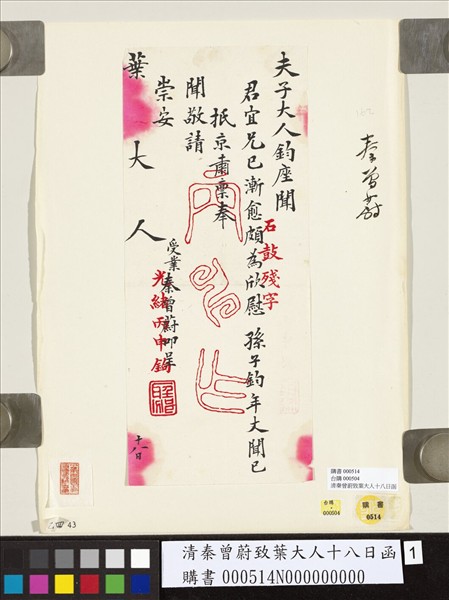 夫子大人鈞座聞
君宜兄已漸愈頗為欣慰孫子鈞年大聞已
抵京肅稟奉
聞敬請
崇安
葉大人
受業秦曾蔚叩呈
十八日
石鼓殘字
光緒丙申鉤
秦曾蔚
購書 000514
台購 000504
清秦曾蔚致葉大人十八日函
台購
000004
購書
0514
43
清秦曾蔚致葉大人十八日函
1
購書 000514N000000000